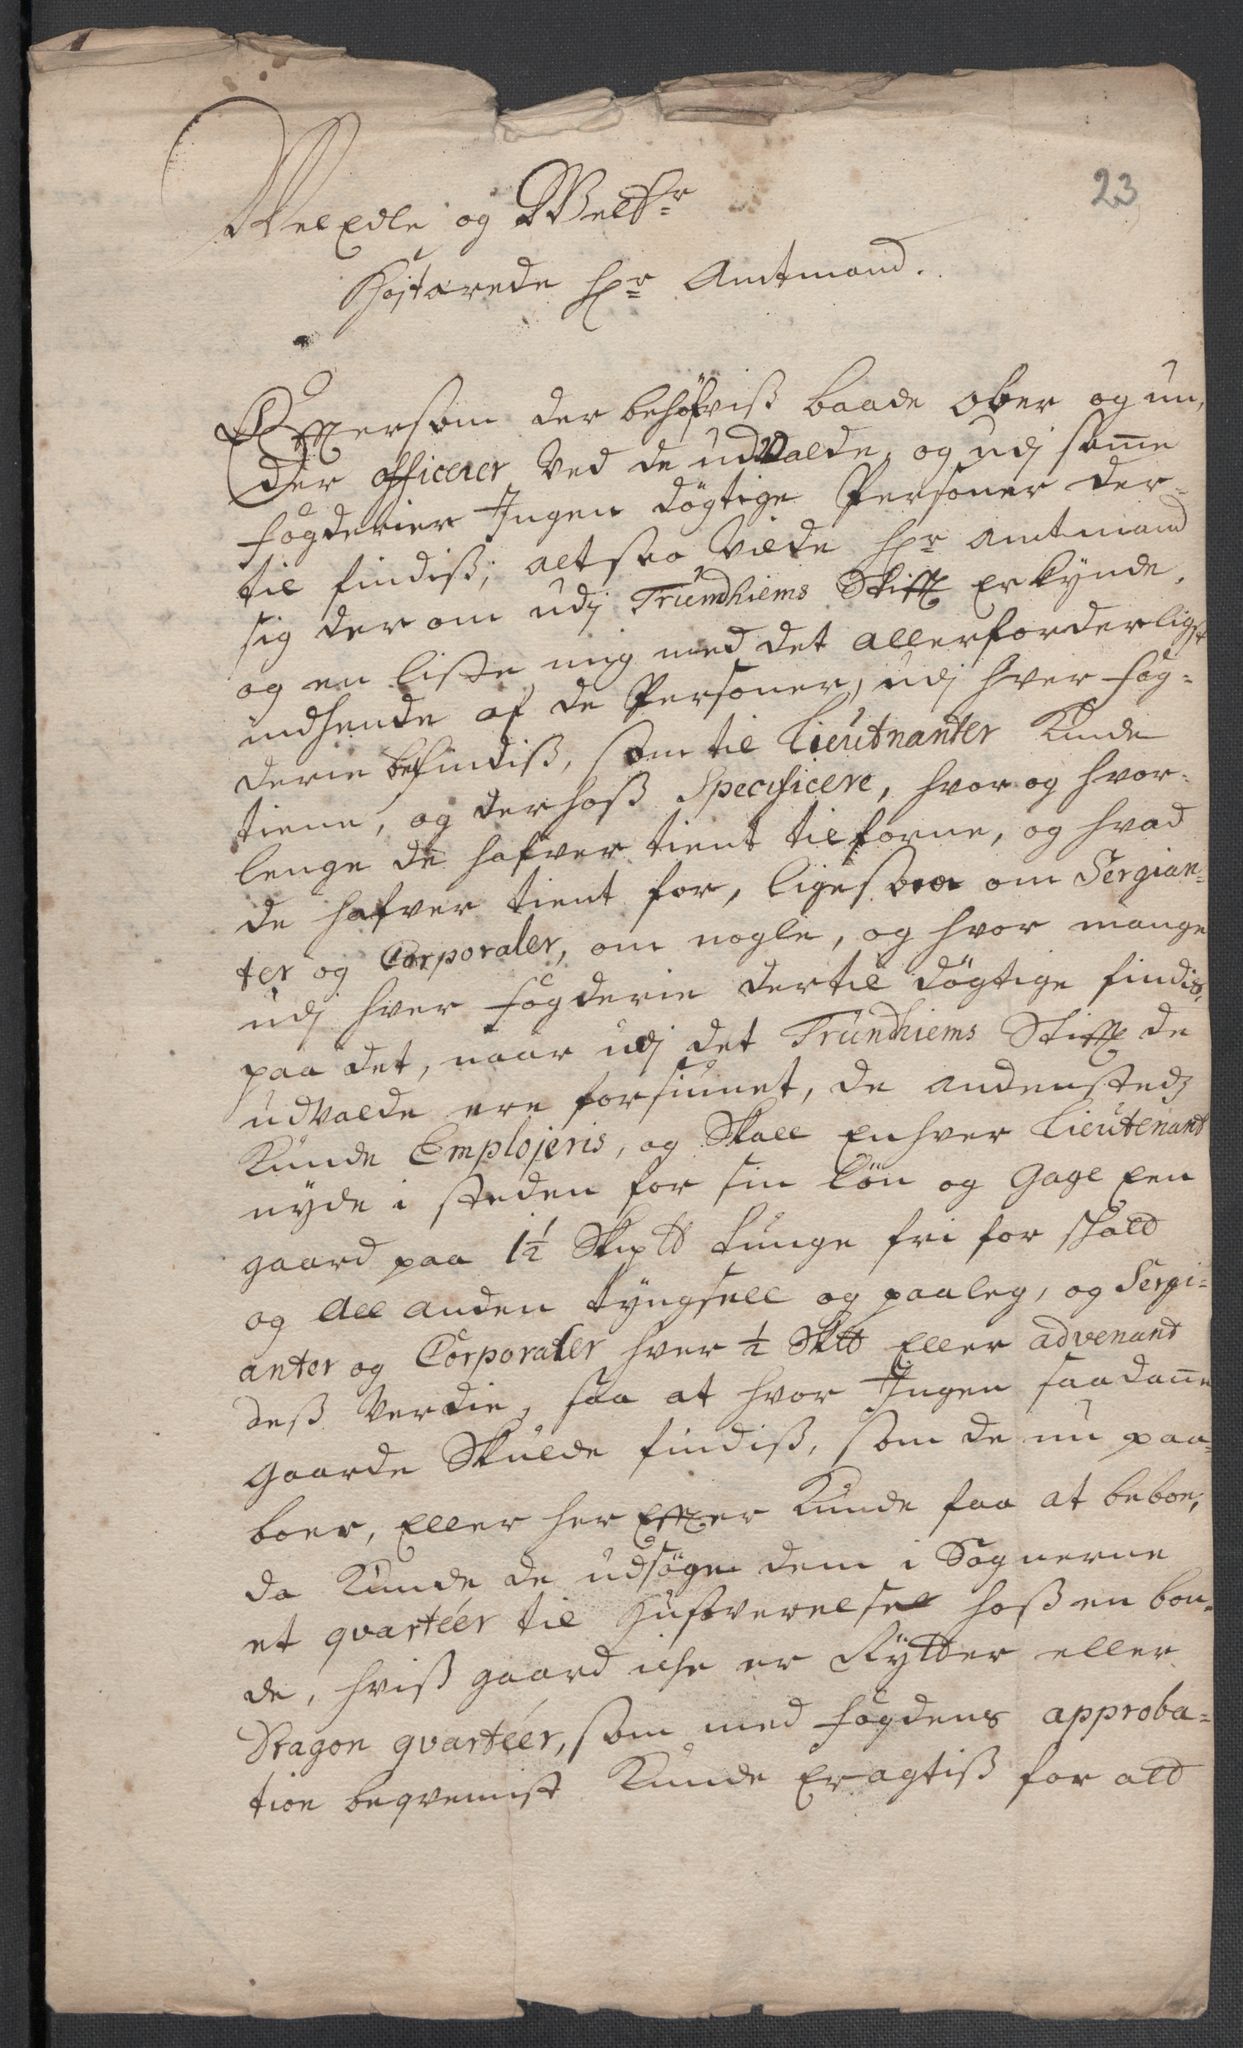 23
Velædle og Welbr
Høytærede hr Amtmand.
Efftersom der behøfviss baade ober og un,
der officerer ved de udvalde, og udj some
fogderier Ingen døgtige Personer der-
til findiss; altsaa vilde hr Amtmand
sig derom udj Trundhiems Stifft erkynde,
og en liste mig med det allerforderligst
indsende af de Personer, udj hver fog-
derie befindiss, som til Lieutnanter kunde
tiene, og derhoss Specificere, hvor og hvor-
lenge de hafver tient tilforne, og hvad
de hafver tient for, ligesom om Sergian-
ter og Corporaler, om nogle, og hvor mange
udj hver fogderie dertil døgtige findis,
paa det, naar udj det Trundhiems Stifft de
udvalde ere forsiunet, de andenstedz
kunde Emplojeris, og skall enhver Lieutenant
nyde i steden for sin løn og Gage een
gaard paa 1½ Skip℔ tunge fri for skatt
og all anden tyngsell og paaleg, og Sergi-
anter og Corporaler hver ½ Sk℔ eller advenant
dess verdie, saa at hvor Ingen saadanne
gaarde skulde findiss, som de nu paa-
boer, eller her effter kunde faa at beboe,
da kunde de udsøge dem i Sognerne
et qvartéer til huusverelse hoss en bon-
de, hviss gaard iche er Rytter eller
Dragon qvartéer, som med fogdens approba-
tion beqvemist kunde eragtiss for ald